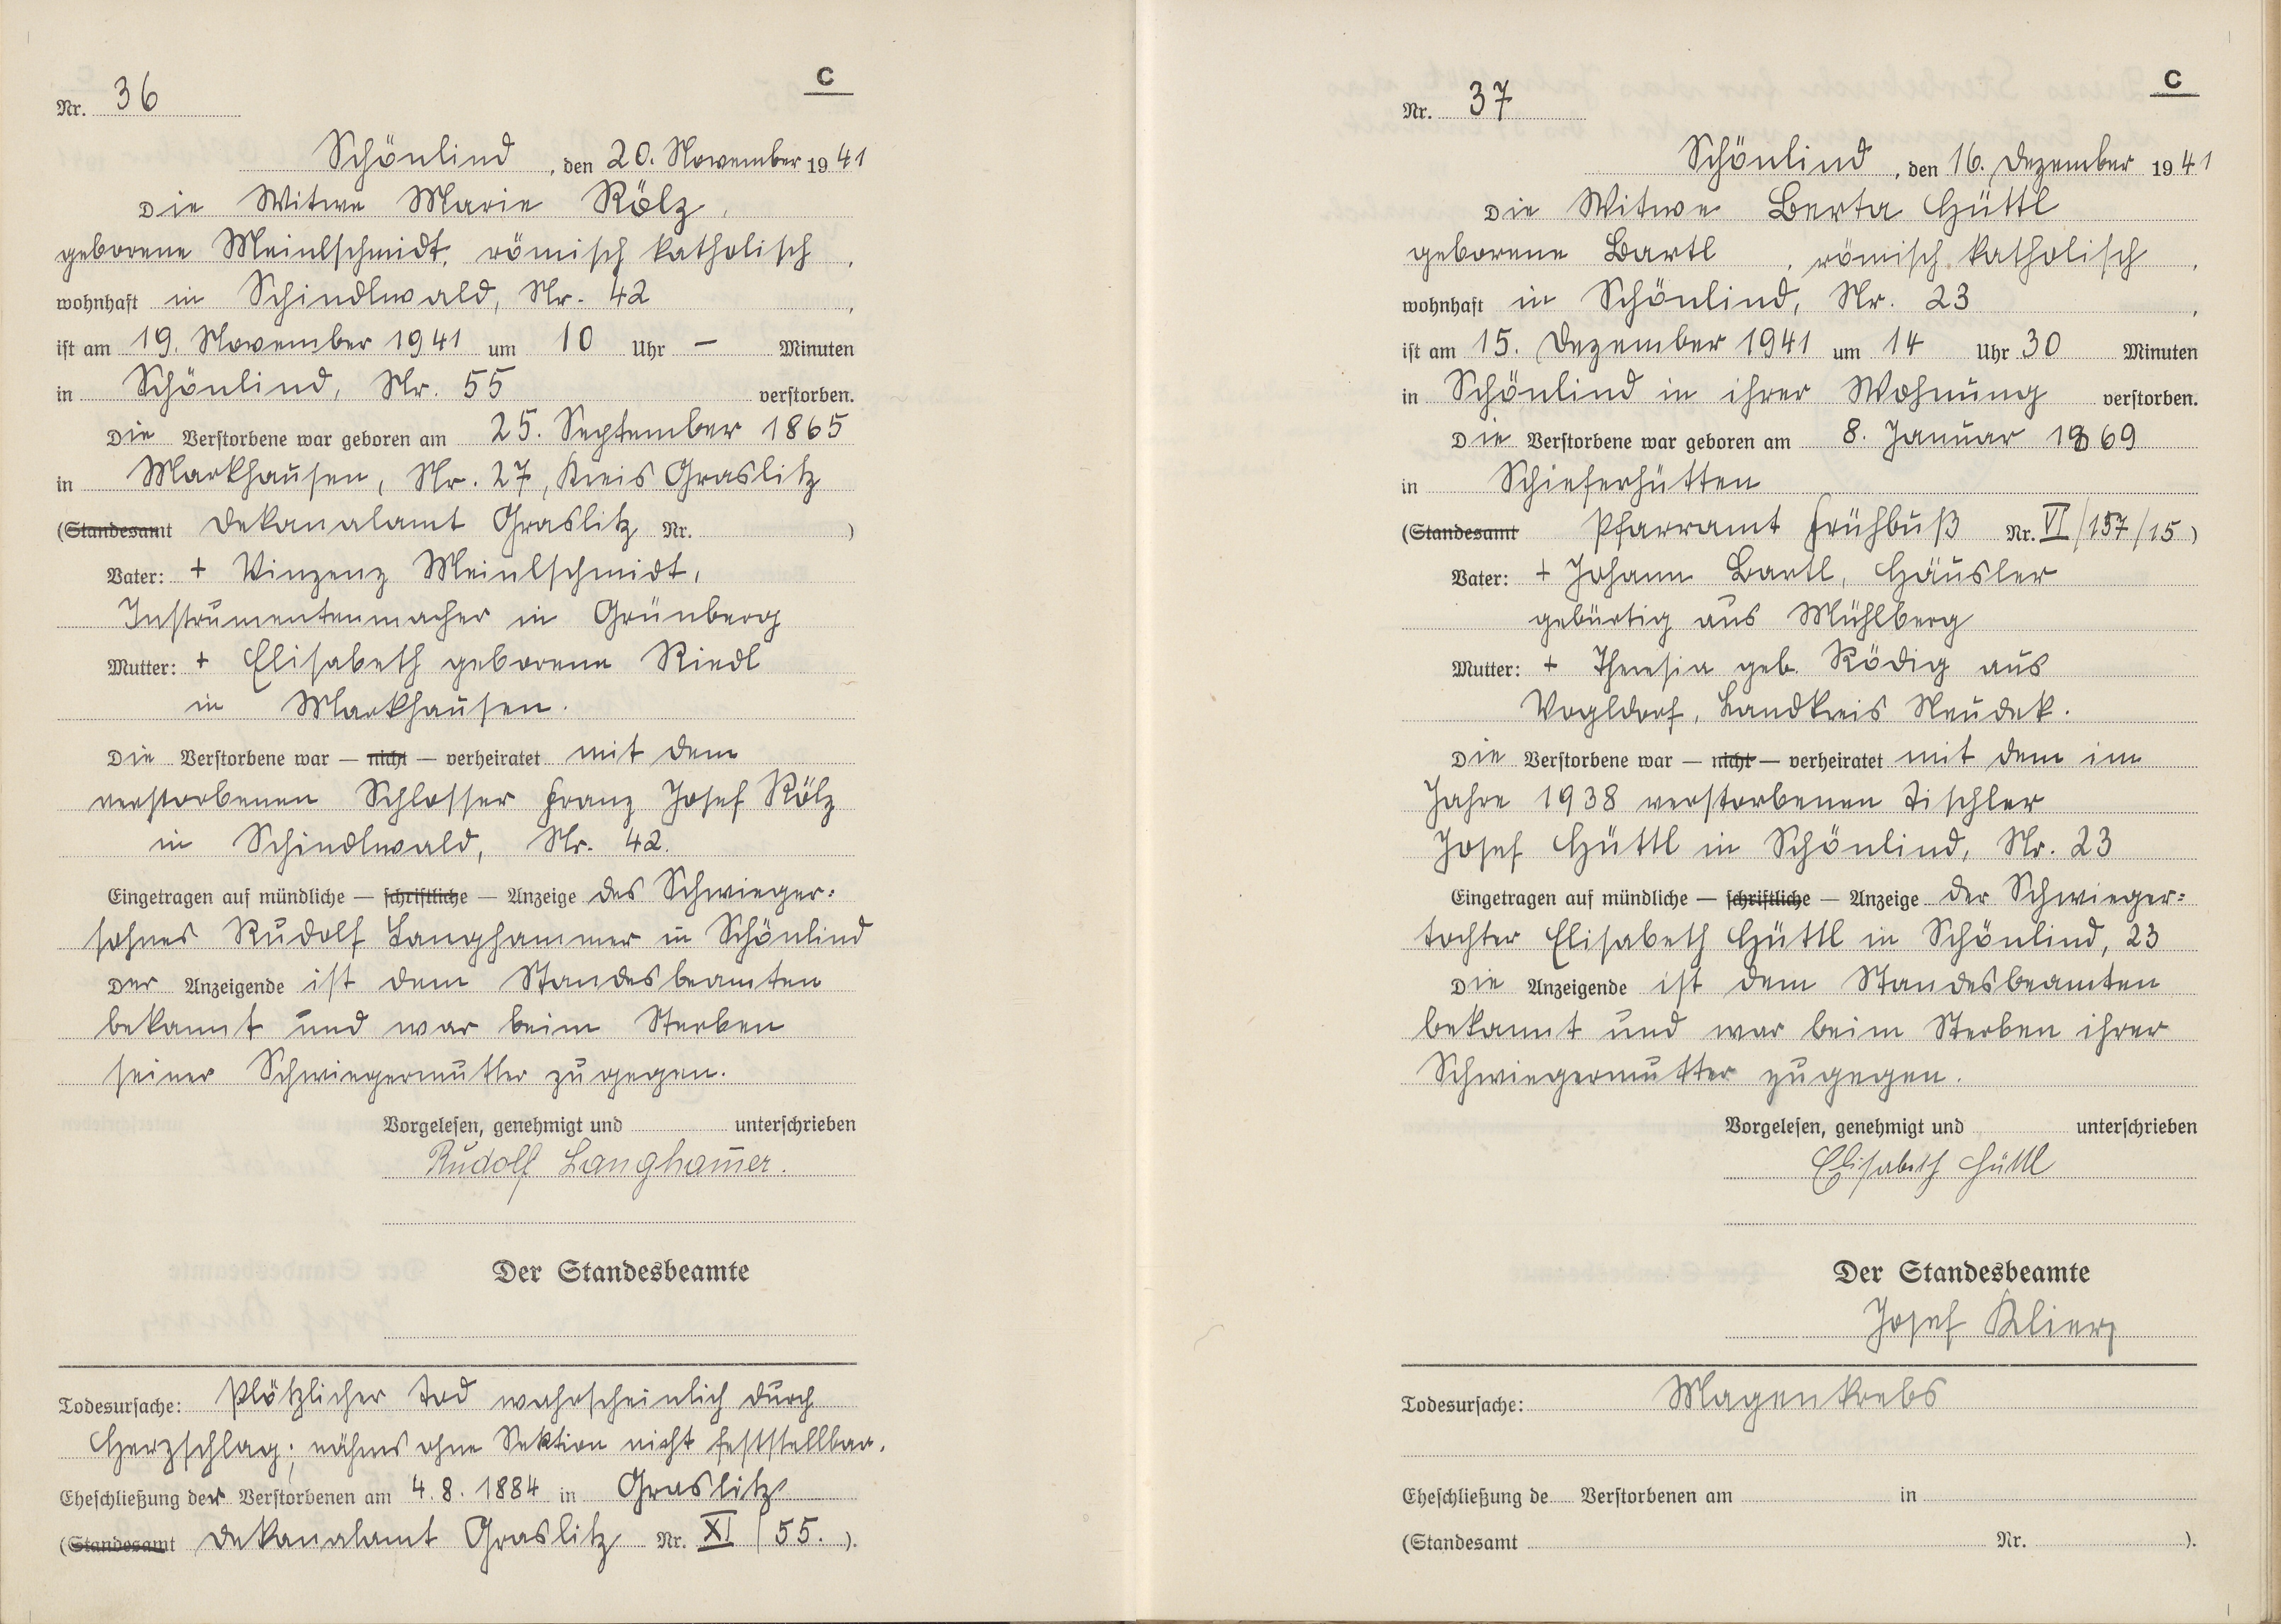 C
Nr. 36
Schönlind, den 20. November 1941
Die Witwe Marie Rölz,
geborene Meinlschmidt, römisch katholisch,
wohnhaft in Schindlwald, Nr. 42,
ist am 19. November 1941 um 10 Uhr — Minuten
in Schönlind, Nr. 55 verstorben.
Die Verstorbene war geboren am 25. September 1865
in Markhausen, Nr. 27, Kreis Graslitz
(Standesamt Dekanalamt Graslitz Nr. )
Vater: + Vinzenz Meinlschmidt,
Instrumentenmacher in Grünberg
Mutter: + Elisabeth geborene Riedl
in Markhausen.
Die Verstorbene war — nicht — verheiratet mit dem
verstorbenen Schlosser Franz Josef Rölz
in Schindlwald, Nr. 42.
Eingetragen auf mündliche — schriftliche — Anzeige des Schwieger:
sohnes Rudolf Langhammer in Schönlind
Der Anzeigende ist dem Standesbeamten
bekannt und war beim Sterben
seiner Schwiegermutter zugegen.
Vorgelesen, genehmigt und unterschrieben
Rudolf Langham̅er.
Der Standesbeamte
Todesursache: Plötzlicher Tod wahrscheinlich durch
Herzschlag; nähres ohne Sektion nicht feststellbar.
Eheschließung der Verstorbenen am 4. 8. 1884 in Graslitz
(Standesamt Dekanalamt Graslitz Nr. XI / 55. ).
C
Nr. 37
Schönlind, den 16. Dezember 1941
Die Witwe Berta Hüttl
geborene Bartl, römisch katholisch,
wohnhaft in Schönlind, Nr. 23,
ist am 15. Dezember 1941 um 14 Uhr 30 Minuten
in Schönlind in ihrer Wohnung verstorben.
Die Verstorbene war geboren am 8. Januar 1869
in Schieferhütten
(Standesamt Pfarramt Frühbuß Nr. VI/157/15)
Vater: + Johann Bartl, Häusler
gebürtig aus Mühlberg
Mutter: + Theresia geb. Rödig aus
Vogldorf, Landkreis Neudek.
Die Verstorbene war — nicht — verheiratet mit dem im
Jahre 1938 verstorbenen Tischler
Josef Hüttl in Schönlind, Nr. 23
Eingetragen auf mündliche — schriftliche — Anzeige der Schwieger:
tochter Elisabeth Hüttl in Schönlind, 23
Die Anzeigende ist dem Standesbeamten
bekannt und war beim Sterben ihrer
Schwiegermutter zugegen.
Vorgelesen, genehmigt und unterschrieben
Elisabeth Hüttl
Der Standesbeamte
Josef Klier
Todesursache: Magenkrebs
Eheschließung de Verstorbenen am in
(Standesamt Nr. ).